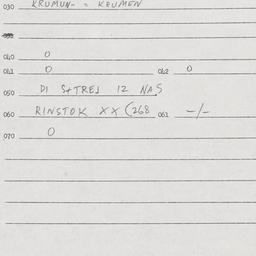 030 KRUMUN- = KRUMEN
040 0
041 0 042 0
050 DI S+TREJ 12 NAS
060 RINSTOK XX (268 061 -/-
070 0